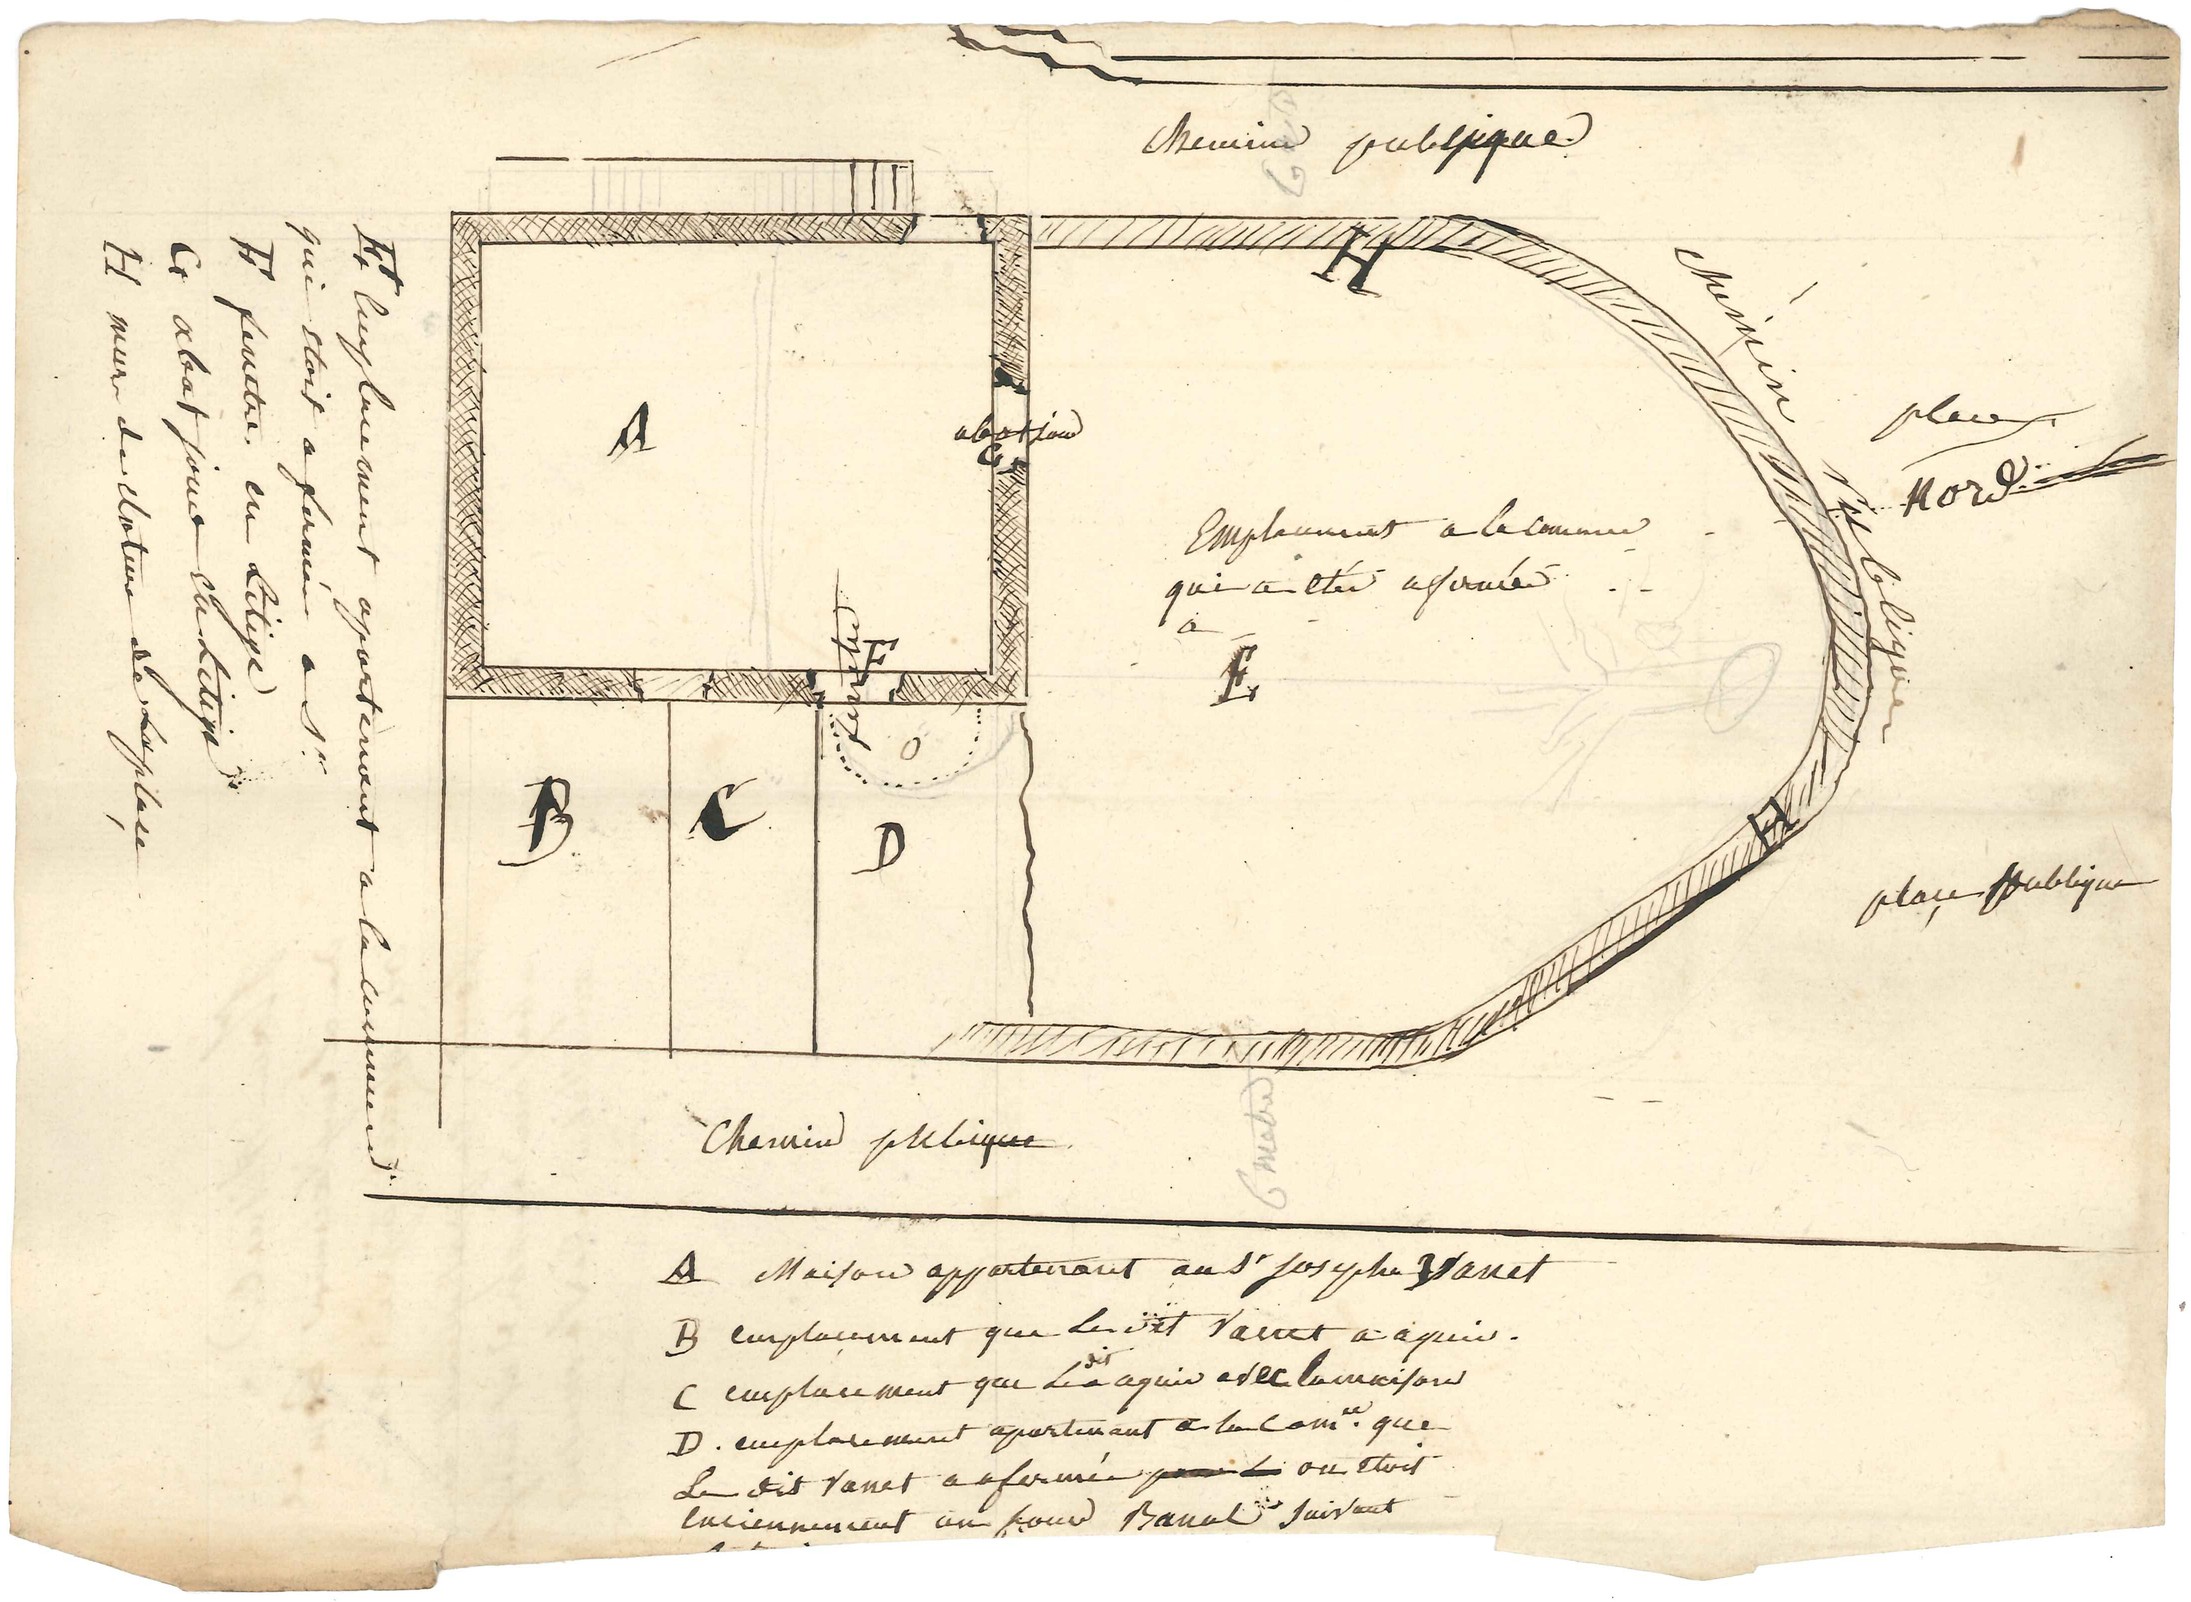 Chemin publique
H
chemin publique
place
Nord
A
abatjour
G
Emplacement a la commune
qui a été afermée
a
E
F
B
C
D
H
place publique
Chemin publique
6 metre
A Maison appartenant au Sr Joseph Vanet
B emplacement que Le dit Vanet a aquis.
C emplacement que Le dit a aquis avec la maison
D. emplacement apartenant a la Comne. que
Le dit Vanet a afermée ou étoit
enciennement un four Banal suivant
E emplacement apartenant a la commune.
qui etoit afermée a Sr
F fenetre en Litige
G abat jour en Litige
H mur de cloture de la plase